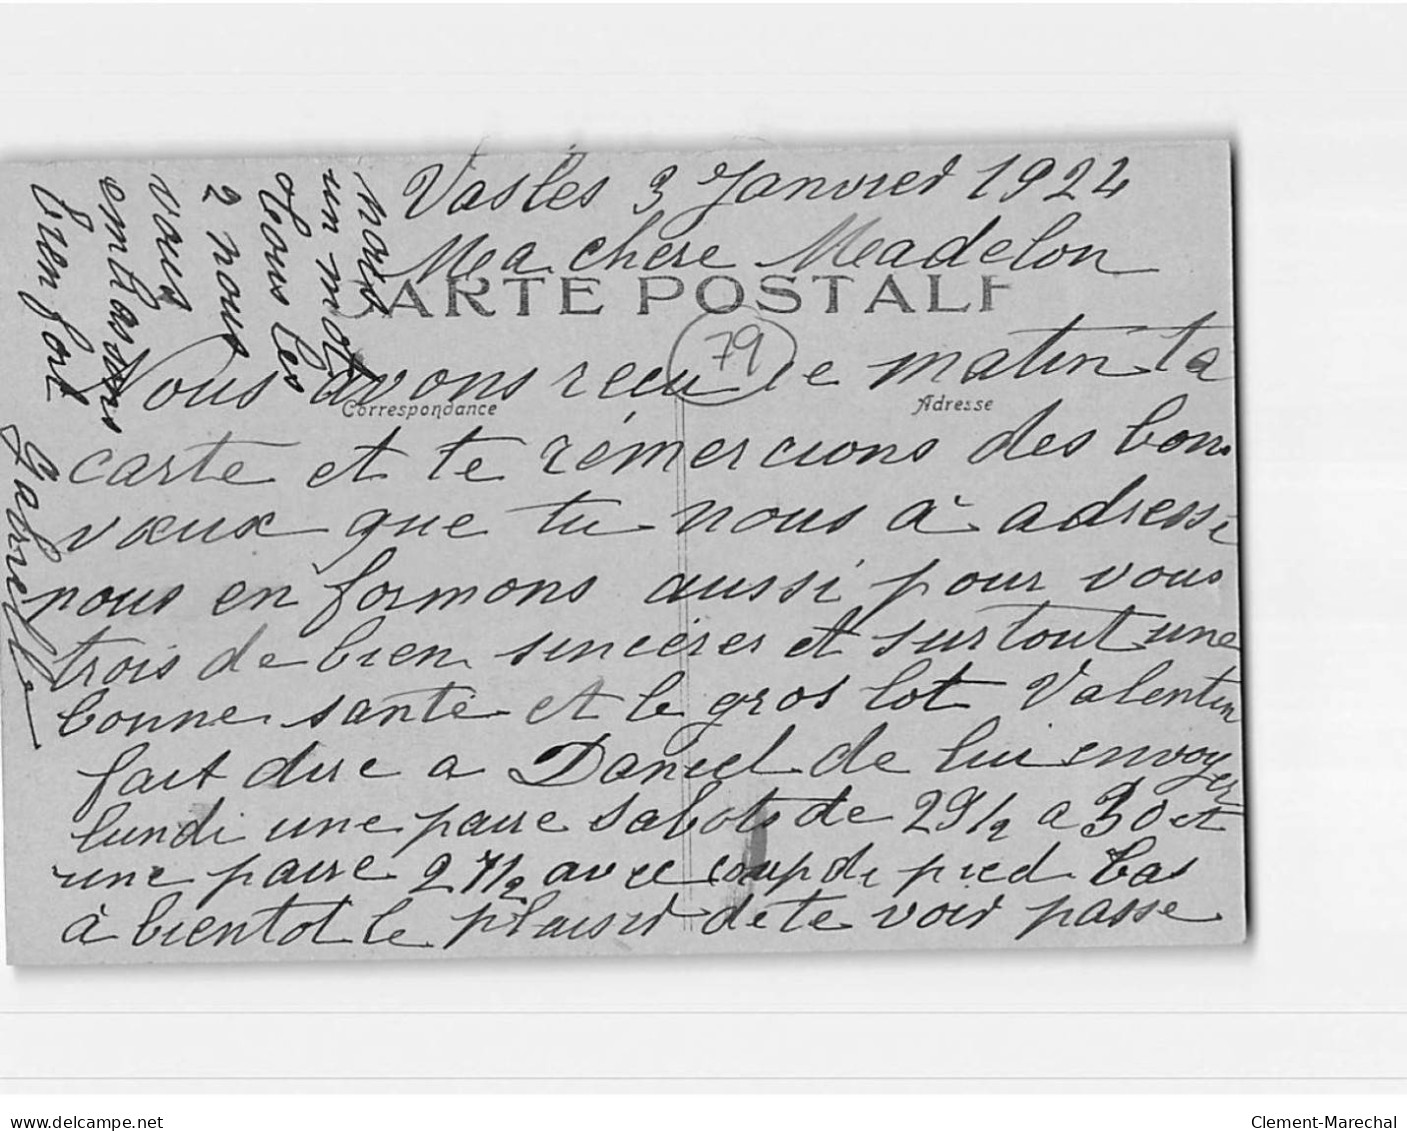 Vasles 3 Janvier 1924
Ma chere Madelon
CARTE POSTALE
79
Correspondance
Adresse
Nous avons reçu ce matin ta
carte et te rémercions des bons
vœux que tu nous à adressé
nous en formons aussi pour vous
trois de bien sincères et surtout une
bonne santé et le gros lot Valentin
fait dire a Daniel de lui envoyer
lundi une paire sabots de 29 1/2 a 30 et
une paire 27 1/2 avec coup de pied bas
à bientot le plaisir de te voir passe
nous
un mot
tous les
2 nous
vous
embrassons
bien fort
Gabrielle
delcampe.net
Clement-Marechal